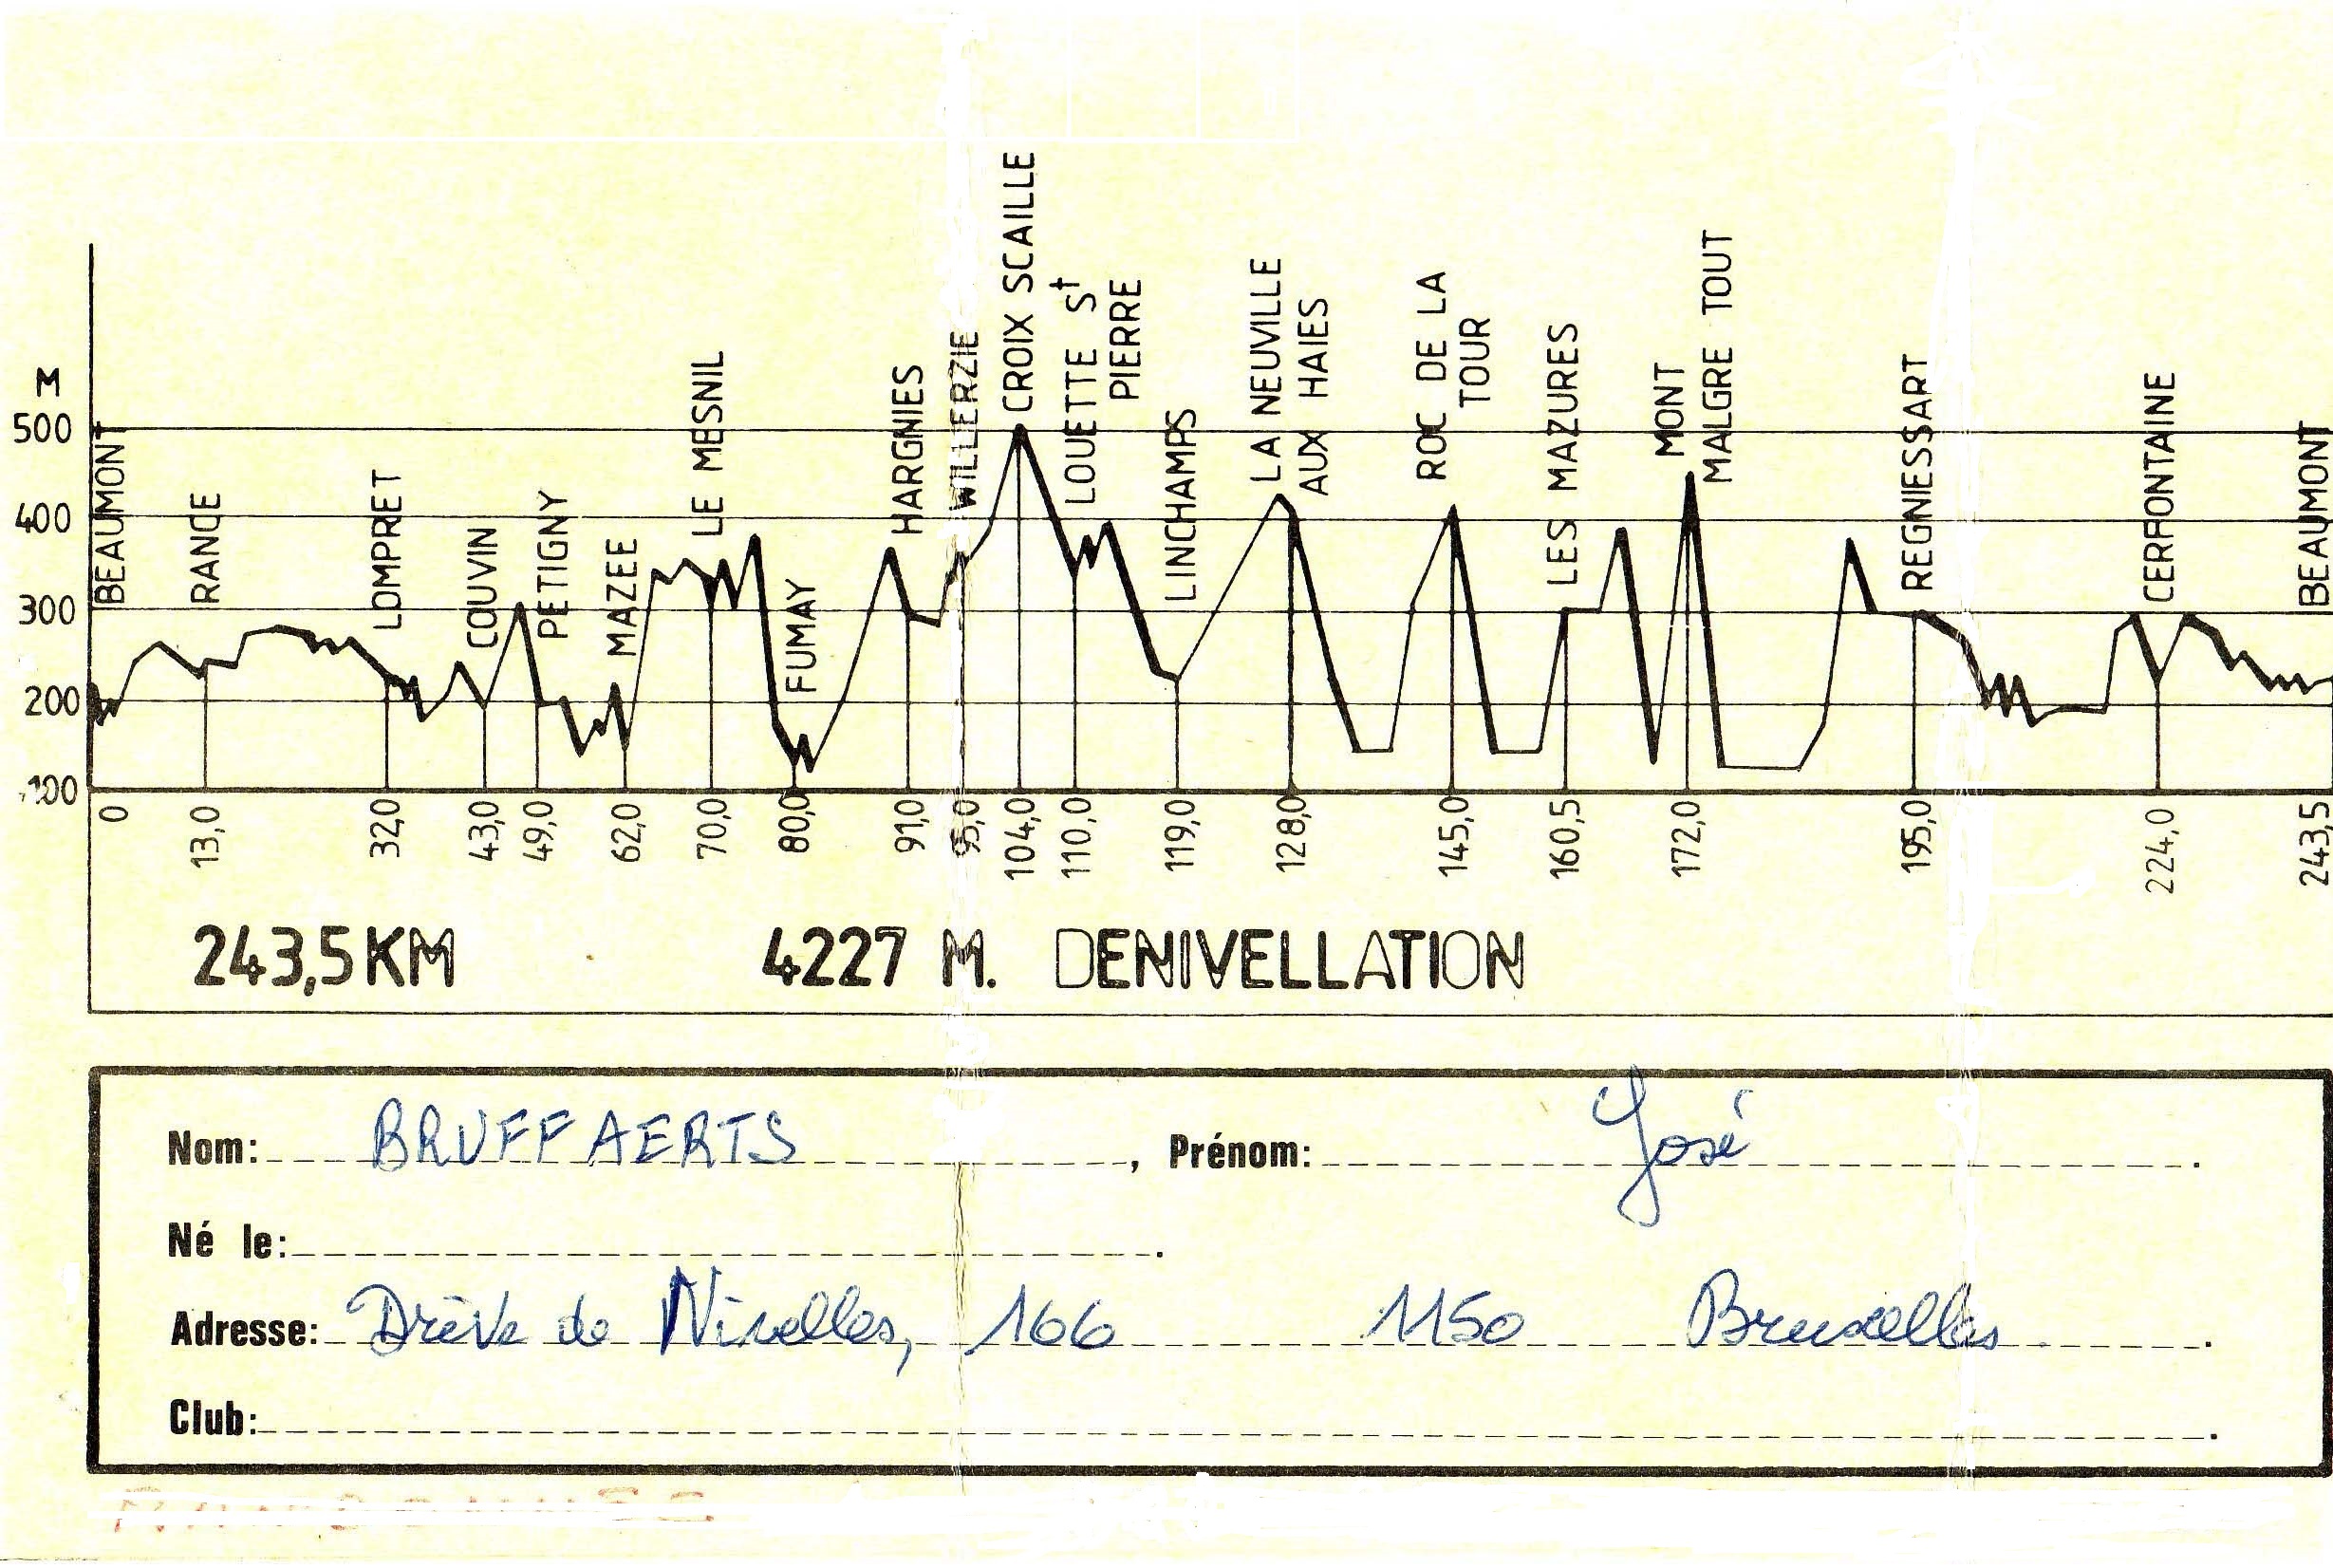 M
500
400
300
200
100
BEAUMONT
RANCE
LOMPRET
COUVIN
PETIGNY
MAZEE
LE MESNIL
FUMAY
HARGNIES
WILLERZIE
CROIX SCAILLE
LOUETTE St
PIERRE
LINCHAMPS
LA NEUVILLE
AUX HAIES
ROC DE LA
TOUR
LES MAZURES
MONT
MALGRE TOUT
REGNIESSART
CERFONTAINE
BEAUMONT
0 13,0 32,0 43,0 49,0 62,0 70,0 80,0 91,0 95,0 104,0 110,0 119,0 128,0 145,0 160,5 172,0 195,0 224,0 243,5
243,5 KM 4227 M. DENIVELLATION
Nom: BRUFFAERTS, Prénom: José.
Né le: .
Adresse: Drève de Nivelles, 166 1150 Bruxelles.
Club: .